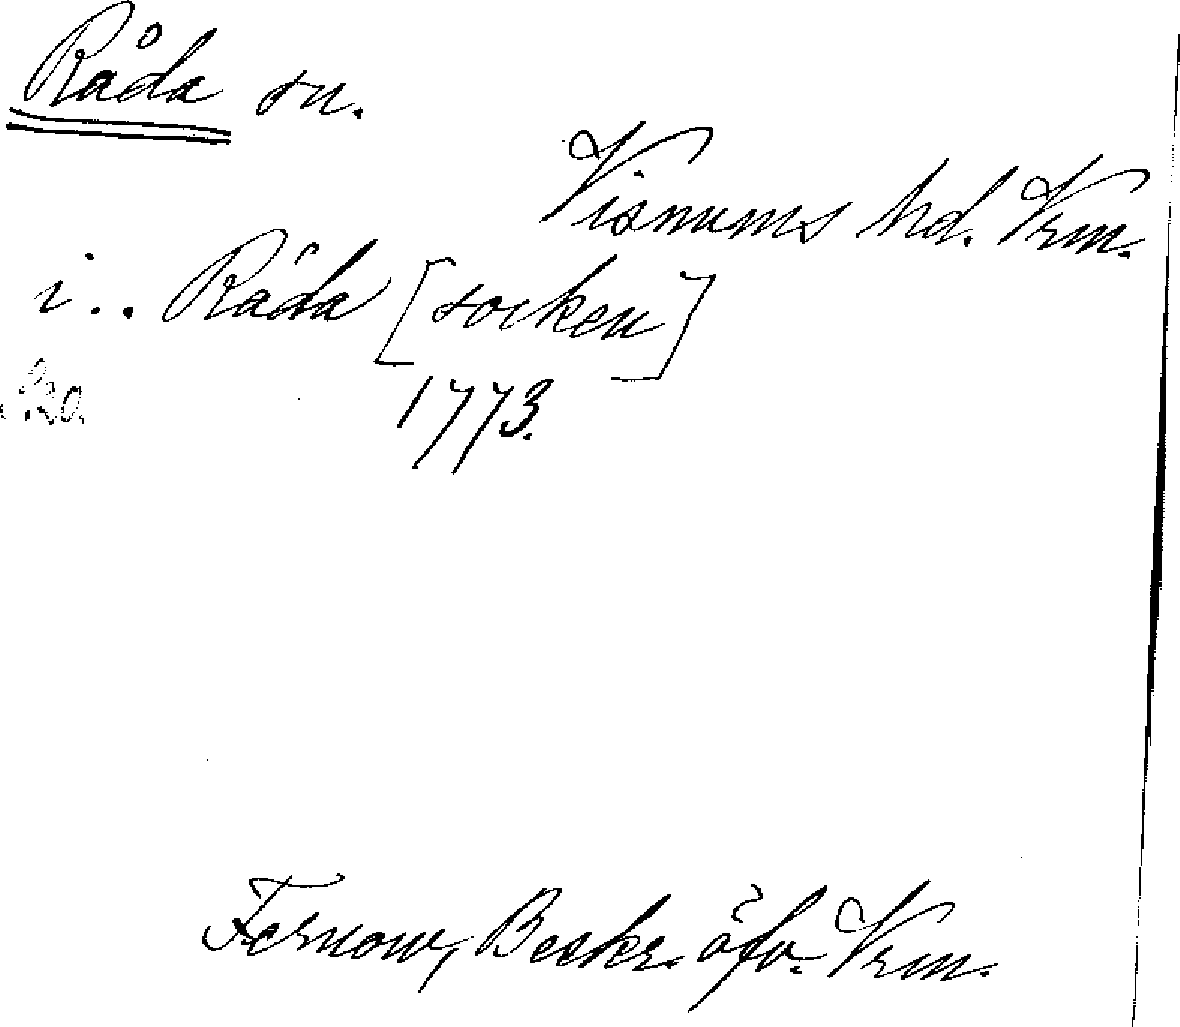 Råda sn.
Visnums hd. Vrm.
i.. Råda [socken]
1773.
Fernow, Beskr. öfv. Vrm.